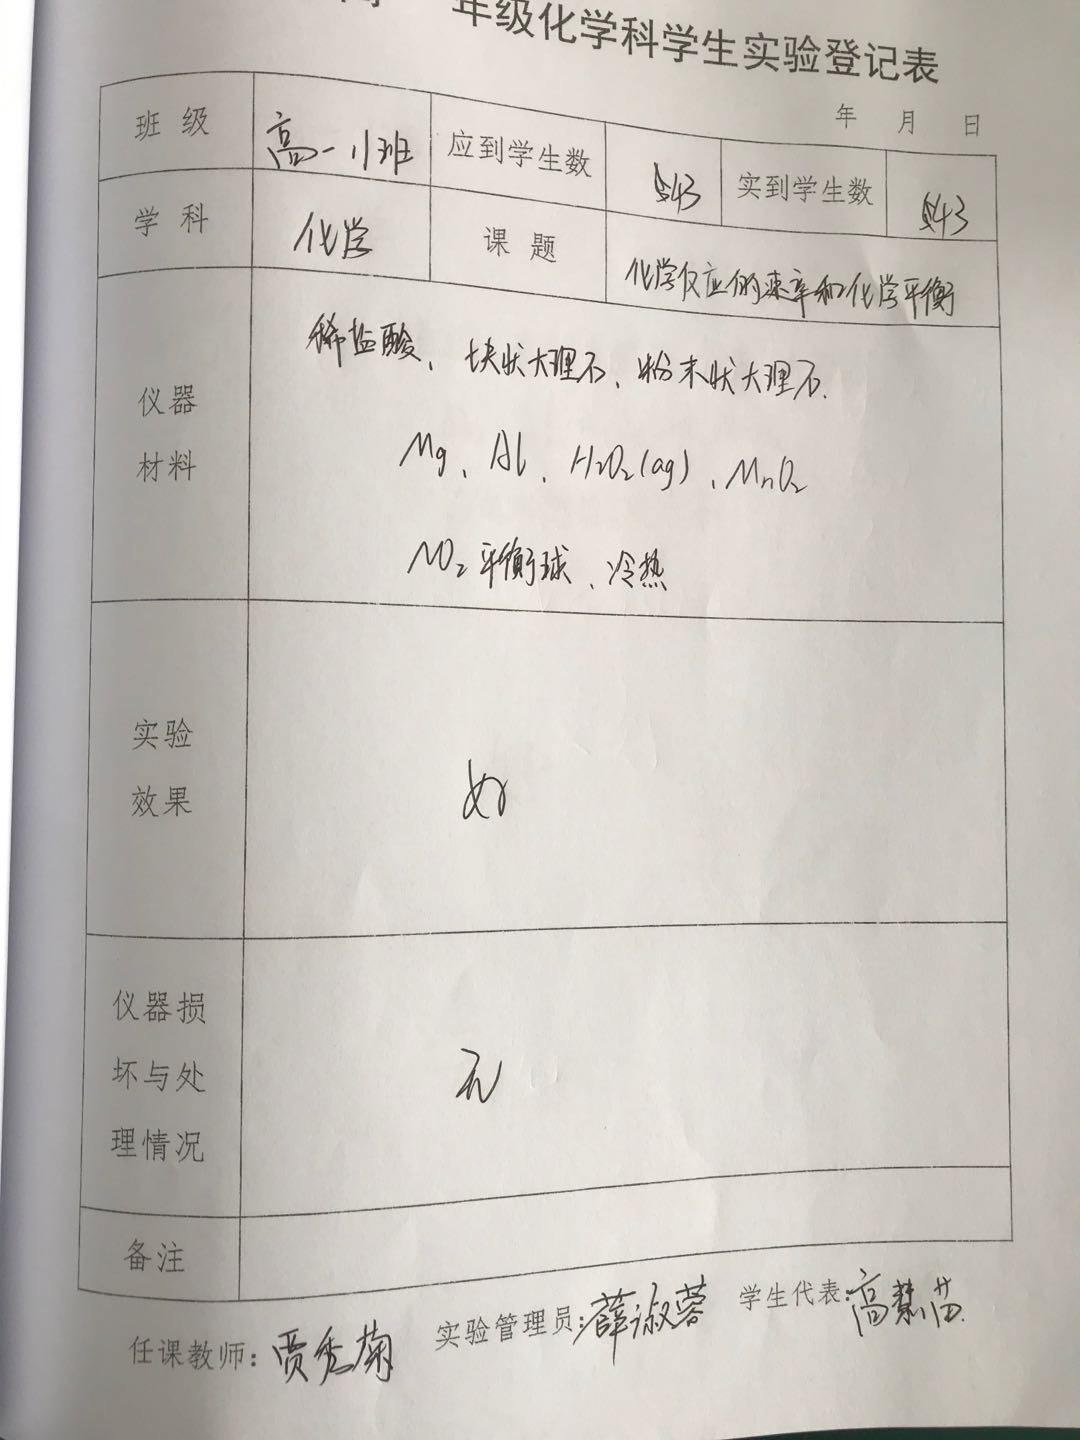 年级化学科学生实验登记表
年 月 日
班 级 高一11班 应到学生数 43 实到学生数 43
学 科 化学 课 题 化学反应的速率和化学平衡
仪器
材料
稀盐酸、块状大理石、粉末状大理石.
Mg、Al、H2O2(aq)、MnO2
NO2平衡球、冷热
实验
效果
好
仪器损
坏与处
理情况
无
备注
任课教师：贾秀菊 实验管理员：薛淑蓉 学生代表：高慧苗